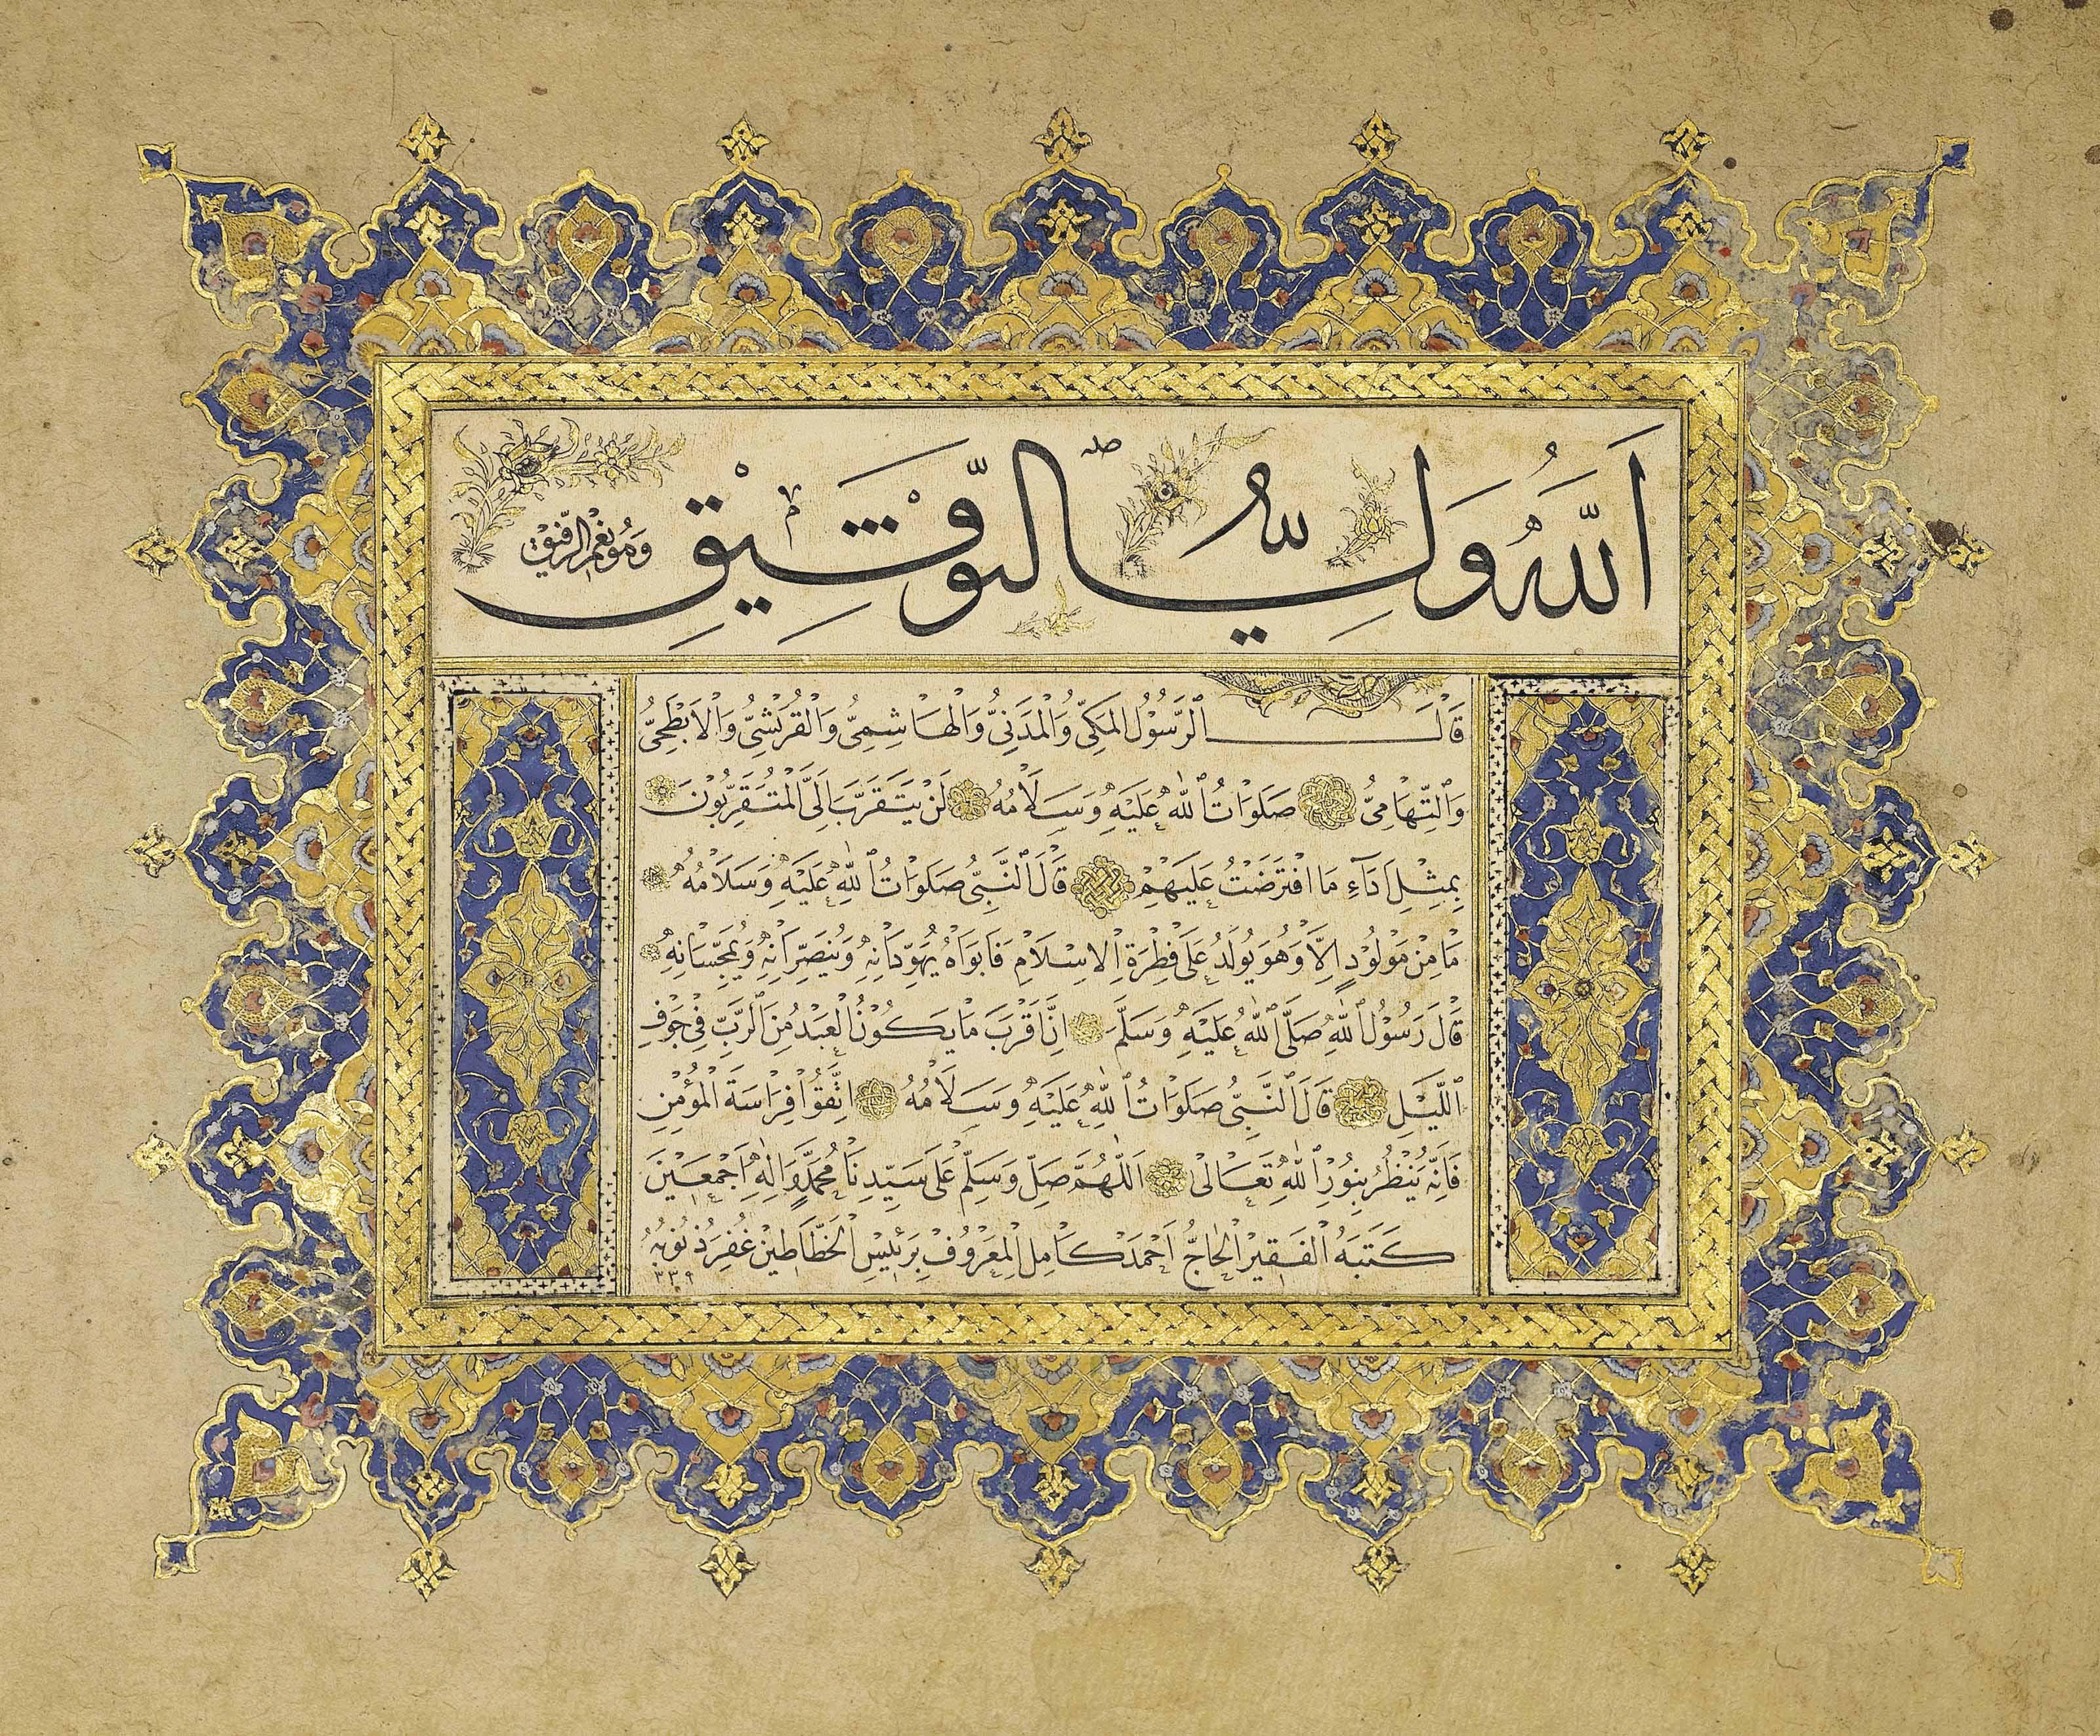 اَللّٰهُ وَلِيُّ التَّوْفِيقِ
وَهُوَ نِعْمَ الرَّفِيقُ
قَالَ الرَّسُولُ الْمَكِّيُّ وَالْمَدَنِيُّ وَالْهَاشِمِيُّ وَالْقُرَشِيُّ وَالْاَبْطَحِيُّ
وَالتِّهَامِيُّ صَلَوَاتُ اللّٰهِ عَلَيْهِ وَسَلَامُهُ لَنْ يَتَقَرَّبَ اِلَيَّ الْمُتَقَرِّبُونَ
بِمِثْلِ اَدَاءِ مَا افْتَرَضْتُ عَلَيْهِمْ قَالَ النَّبِيُّ صَلَوَاتُ اللّٰهِ عَلَيْهِ وَسَلَامُهُ
مَا مِنْ مَوْلُودٍ اِلَّا وَهُوَ يُولَدُ عَلَى فِطْرَةِ الْاِسْلَامِ فَاَبَوَاهُ يُهَوِّدَانِهِ وَيُنَصِّرَانِهِ وَيُمَجِّسَانِهِ
قَالَ رَسُولُ اللّٰهِ صَلَّى اللّٰهُ عَلَيْهِ وَسَلَّمَ اِنَّ اَقْرَبَ مَا يَكُونُ الْعَبْدُ مِنَ الرَّبِّ فِي جَوْفِ
اللَّيْلِ قَالَ النَّبِيُّ صَلَوَاتُ اللّٰهِ عَلَيْهِ وَسَلَامُهُ اتَّقُوا فِرَاسَةَ الْمُؤْمِنِ
فَاِنَّهُ يَنْظُرُ بِنُورِ اللّٰهِ تَعَالٰى اَللّٰهُمَّ صَلِّ وَسَلِّمْ عَلَى سَيِّدِنَا مُحَمَّدٍ وَاٰلِهِ اَجْمَعِينَ
كَتَبَهُ الْفَقِيرُ الْحَاجُّ اَحْمَدْ كَامِلِ الْمَعْرُوفُ بِرَئِيسِ الْخَطَّاطِينَ غُفِرَ ذُنُوبُهُ
٣٣٩